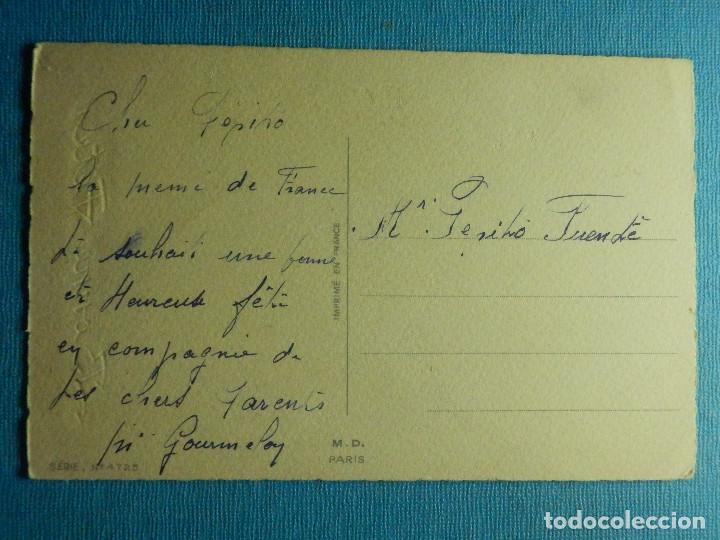 Cher Pepito
ta memé de France
te souhait une bonne
et Heureuse fête
en compagnie de
tes chers Parents
Gourmelay
Mr. Pepito Fuente
IMPRIMÉ EN FRANCE
M.D.
PARIS
SÉRIE. N° 4725
todocoleccion.net